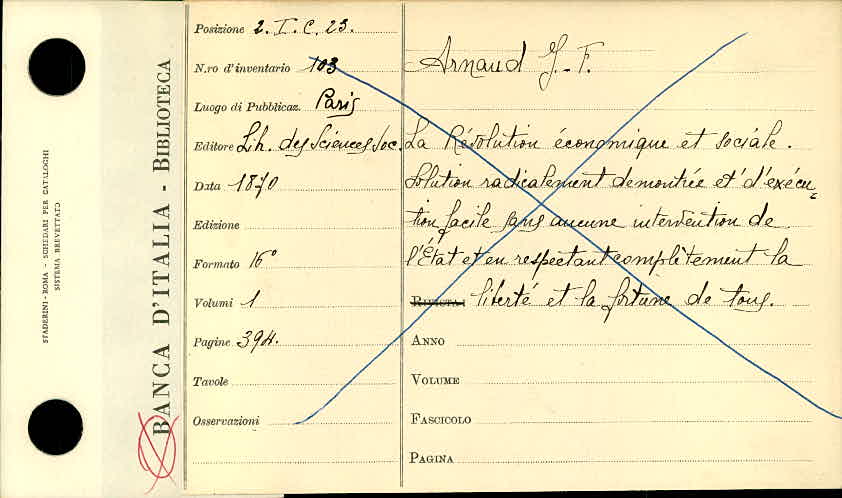 STADERINI - ROMA - SCHEDARI PER CATALOGHI
SISTEMA BREVETTATO
BANCA D'ITALIA - BIBLIOTECA
Posizione 2. I. C. 23.
N.ro d'inventario 103
Luogo di Pubblicaz. Paris
Editore Lih. des Sciences Soc.
Data 1870
Edizione
Formato 16°
Volumi 1
Pagine 394.
Tavole
Osservazioni
Arnaud J.-F.
La Révolution économique et sociale.
Solution radicalement demontrée et d'exécu-
tion facile sans aucune intervention de
l'État et en respectant complètement la
RIVISTA: liberté et la fortune de tous.
ANNO
VOLUME
FASCICOLO
PAGINA